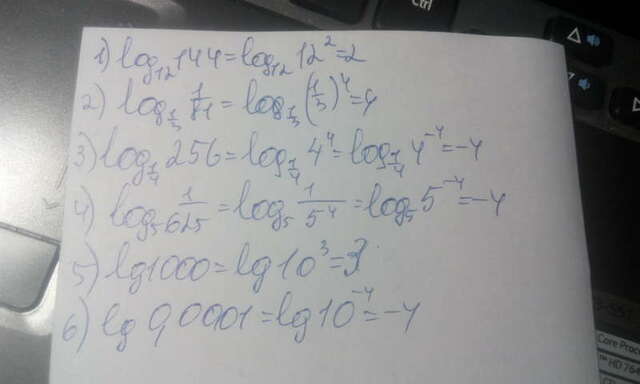 Ctrl
1) log₁₂144 = log₁₂ 12² = 2
2) log_{1/3} 1/81 = log_{1/3} (1/3)⁴ = 4
3) log_{1/4} 256 = log_{1/4} 4⁴ = log_{1/4} 4⁻⁴ = -4
4) log₅ 1/625 = log₅ 1/5⁴ = log₅ 5⁻⁴ = -4
5) lg1000 = lg10³ = 3
6) lg 0,0001 = lg10⁻⁴ = -4
Core Proc
HD 764